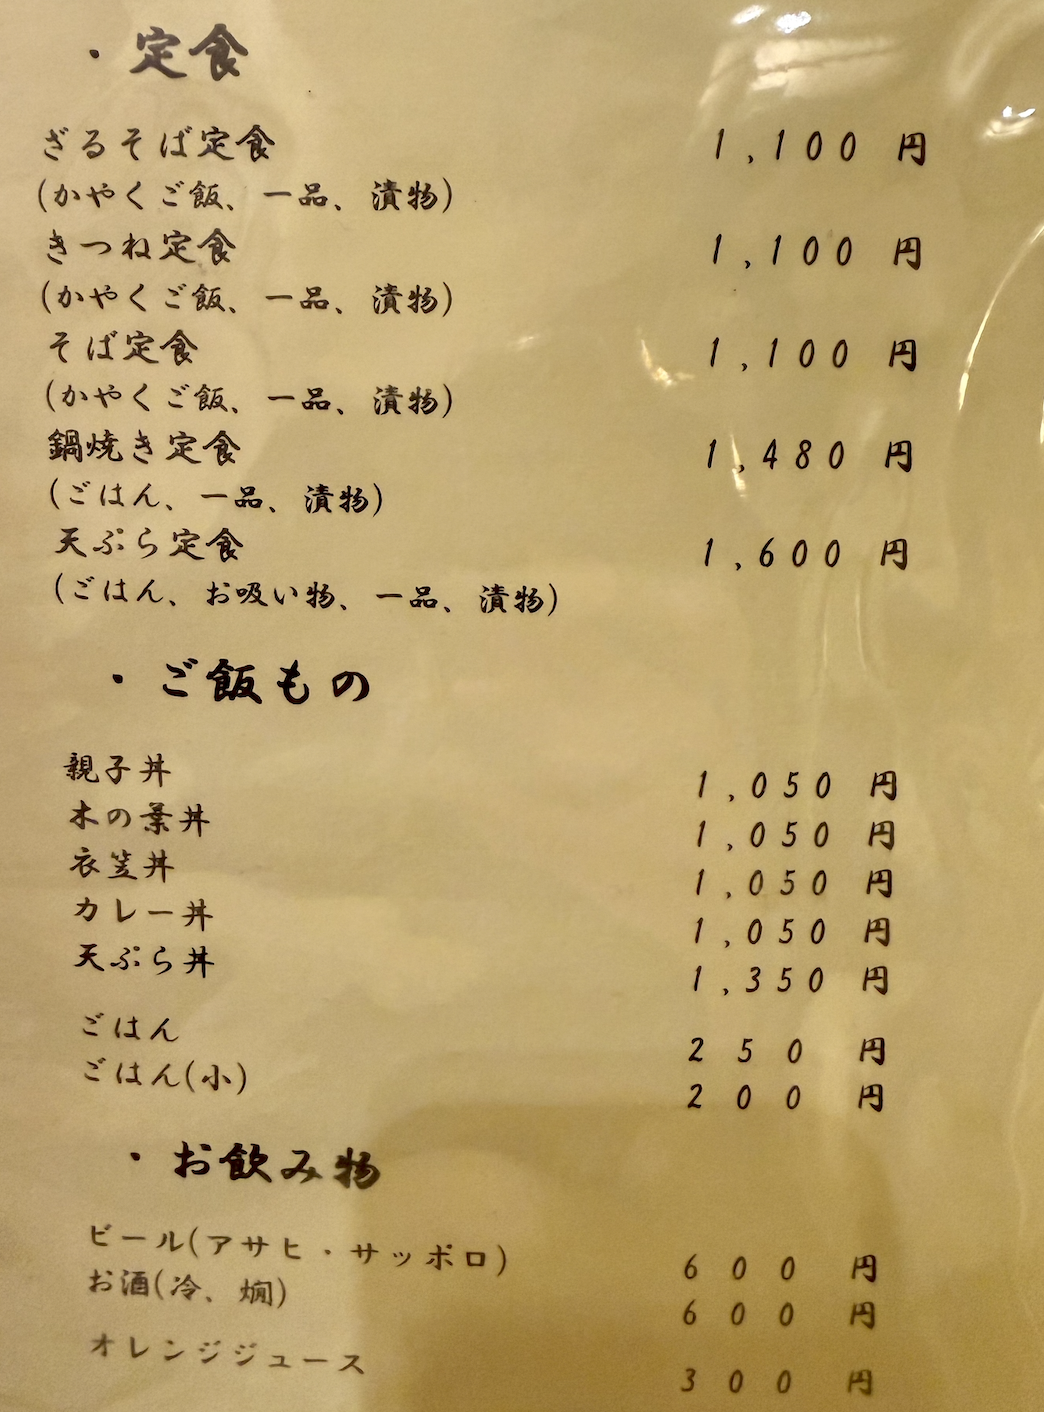 ・定食
ざるそば定食 1,100 円
(かやくご飯、一品、漬物)
きつね定食 1,100 円
(かやくご飯、一品、漬物)
そば定食 1,100 円
(かやくご飯、一品、漬物)
鍋焼き定食 1,480 円
(ごはん、一品、漬物)
天ぷら定食 1,600 円
(ごはん、お吸い物、一品、漬物)
・ご飯もの
親子丼 1,050 円
木の葉丼 1,050 円
衣笠丼 1,050 円
カレー丼 1,050 円
天ぷら丼 1,350 円
ごはん 250 円
ごはん(小) 200 円
・お飲み物
ビール(アサヒ・サッポロ) 600 円
お酒(冷、燗) 600 円
オレンジジュース 300 円